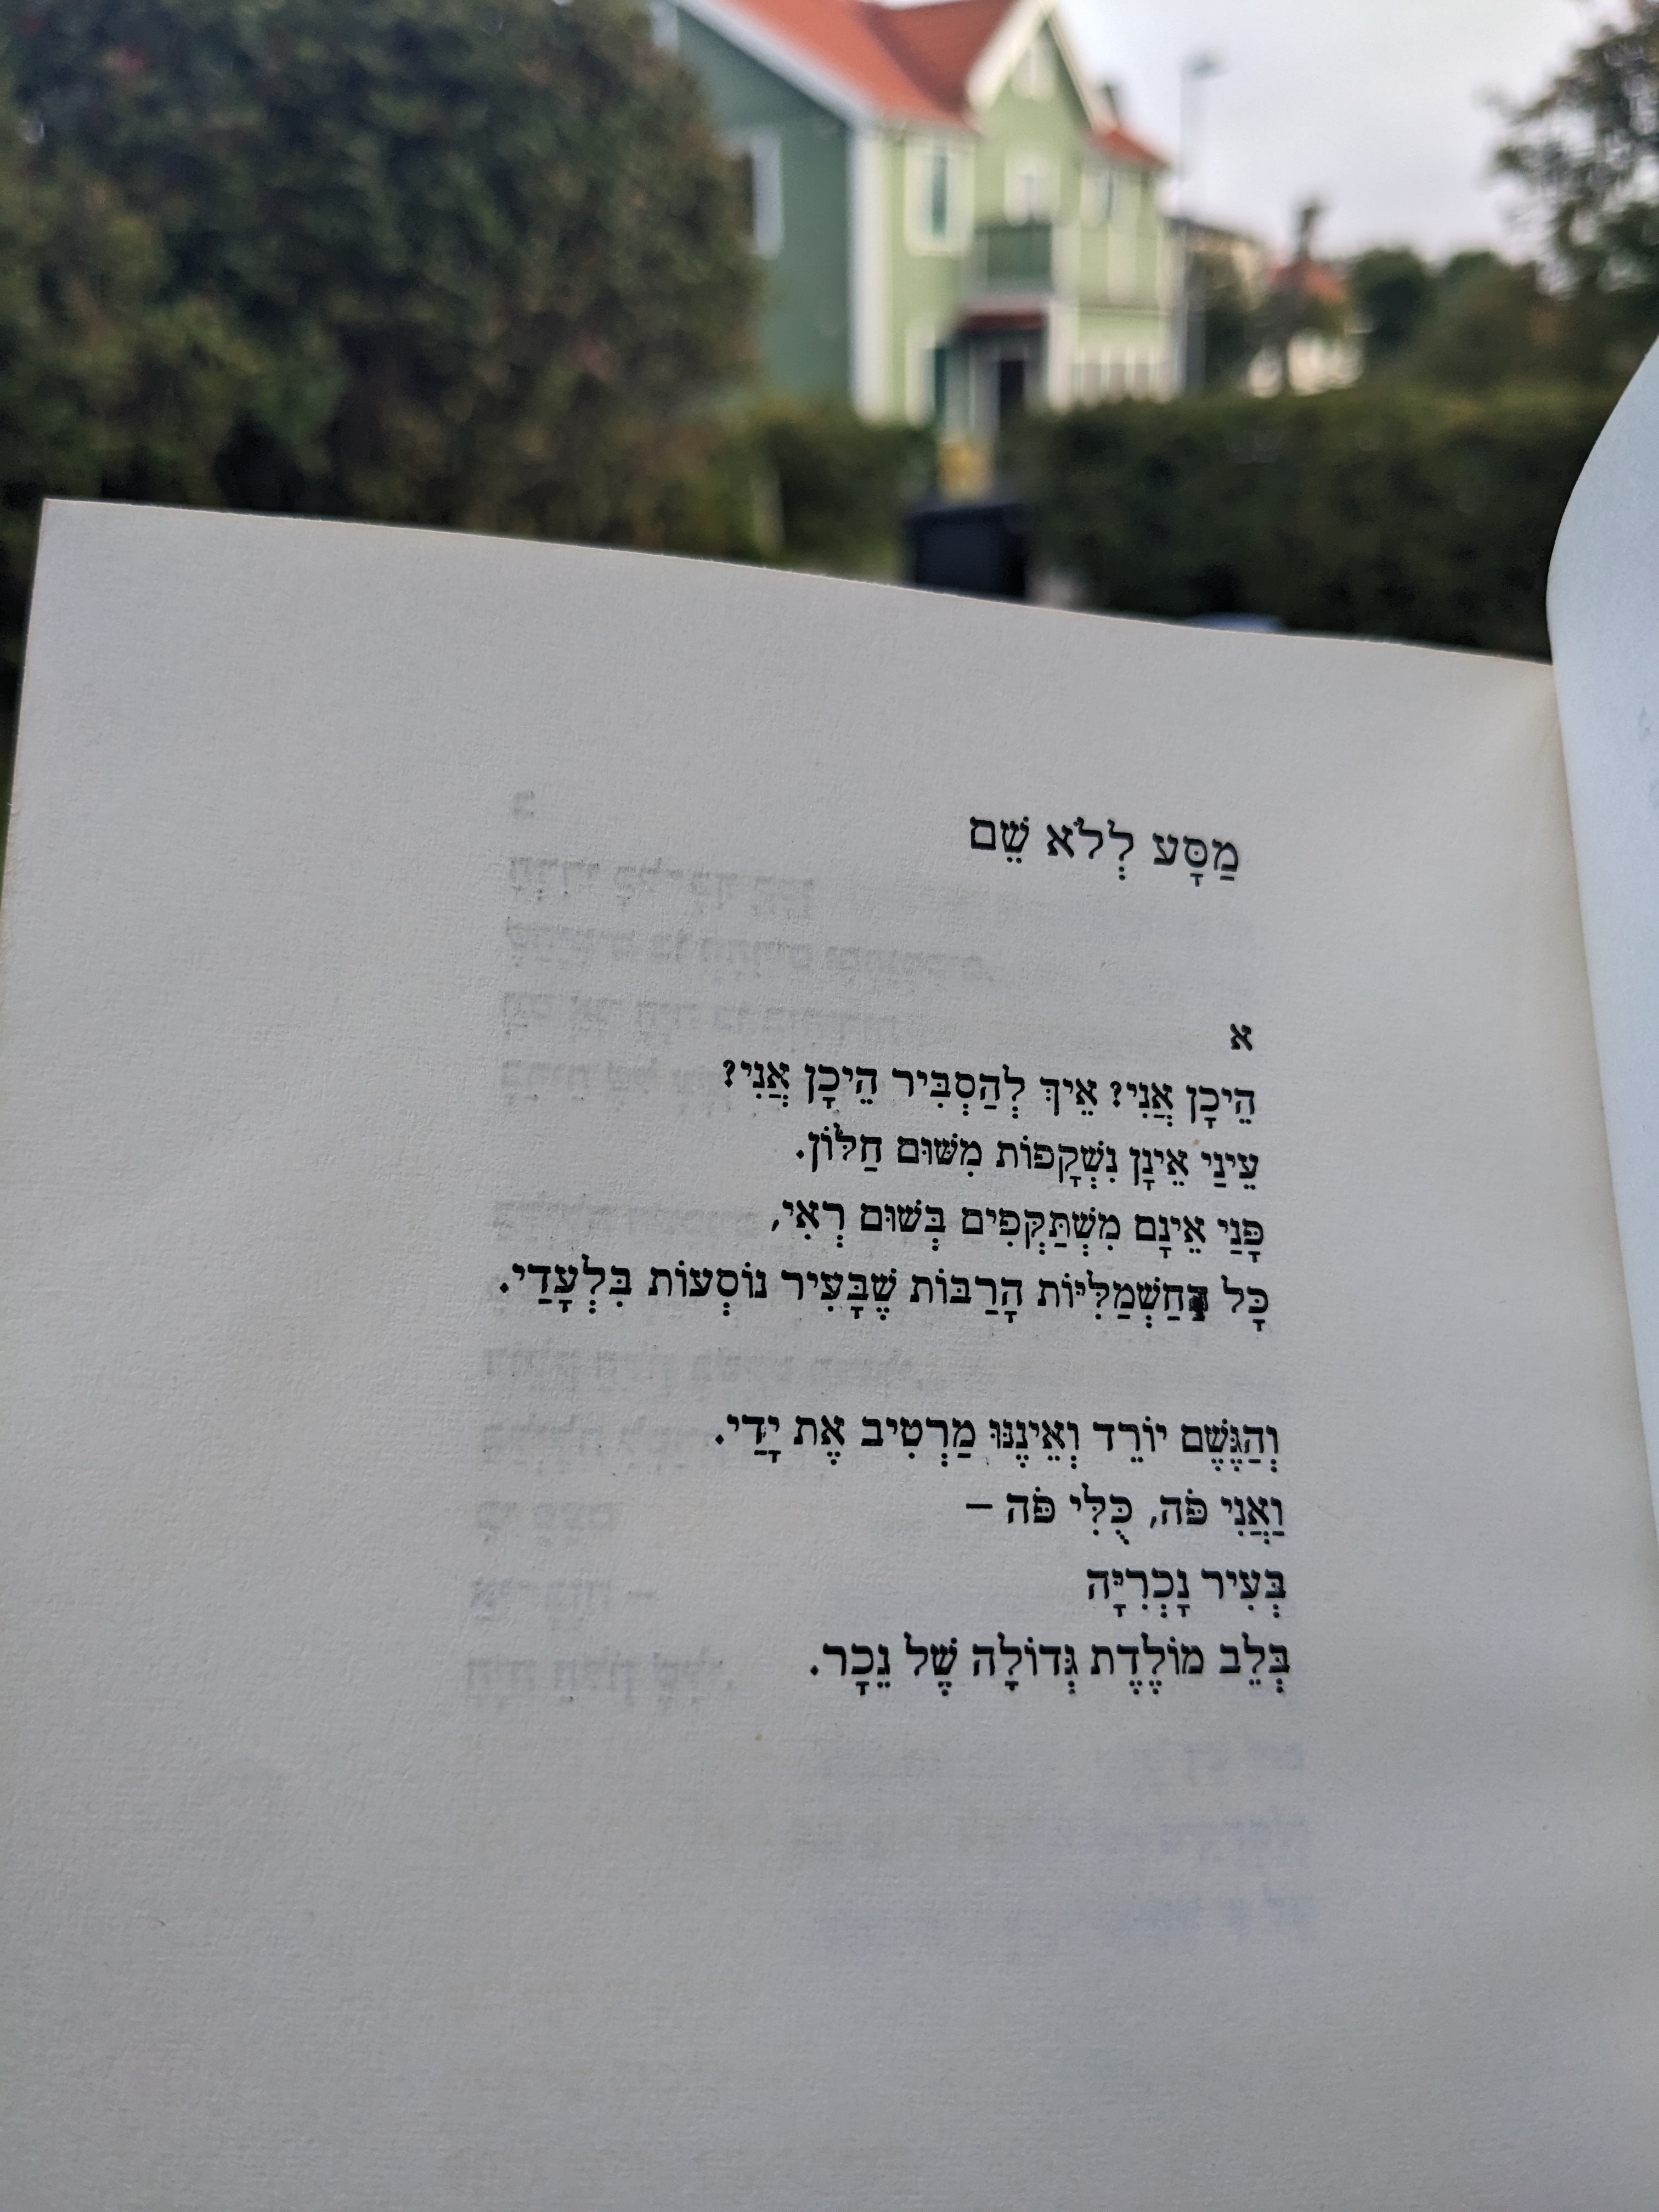 מַסָּע לְלֹא שֵׁם
א
הֵיכָן אֲנִי? אֵיךְ לְהַסְבִּיר הֵיכָן אֲנִי?
עֵינַי אֵינָן נִשְׁקָפוֹת מִשּׁוּם חַלּוֹן.
פָּנַי אֵינָם מִשְׁתַּקְּפִים בְּשׁוּם רְאִי,
כָּל הַחַשְׁמַלִּיּוֹת הָרַבּוֹת שֶׁבָּעִיר נוֹסְעוֹת בִּלְעָדַי.
וְהַגֶּשֶׁם יוֹרֵד וְאֵינֶנּוּ מַרְטִיב אֶת יָדַי.
וַאֲנִי פֹּה, כֻּלִּי פֹּה –
בְּעִיר נָכְרִיָּה
בְּלֵב מוֹלֶדֶת גְּדוֹלָה שֶׁל נֵכָר.